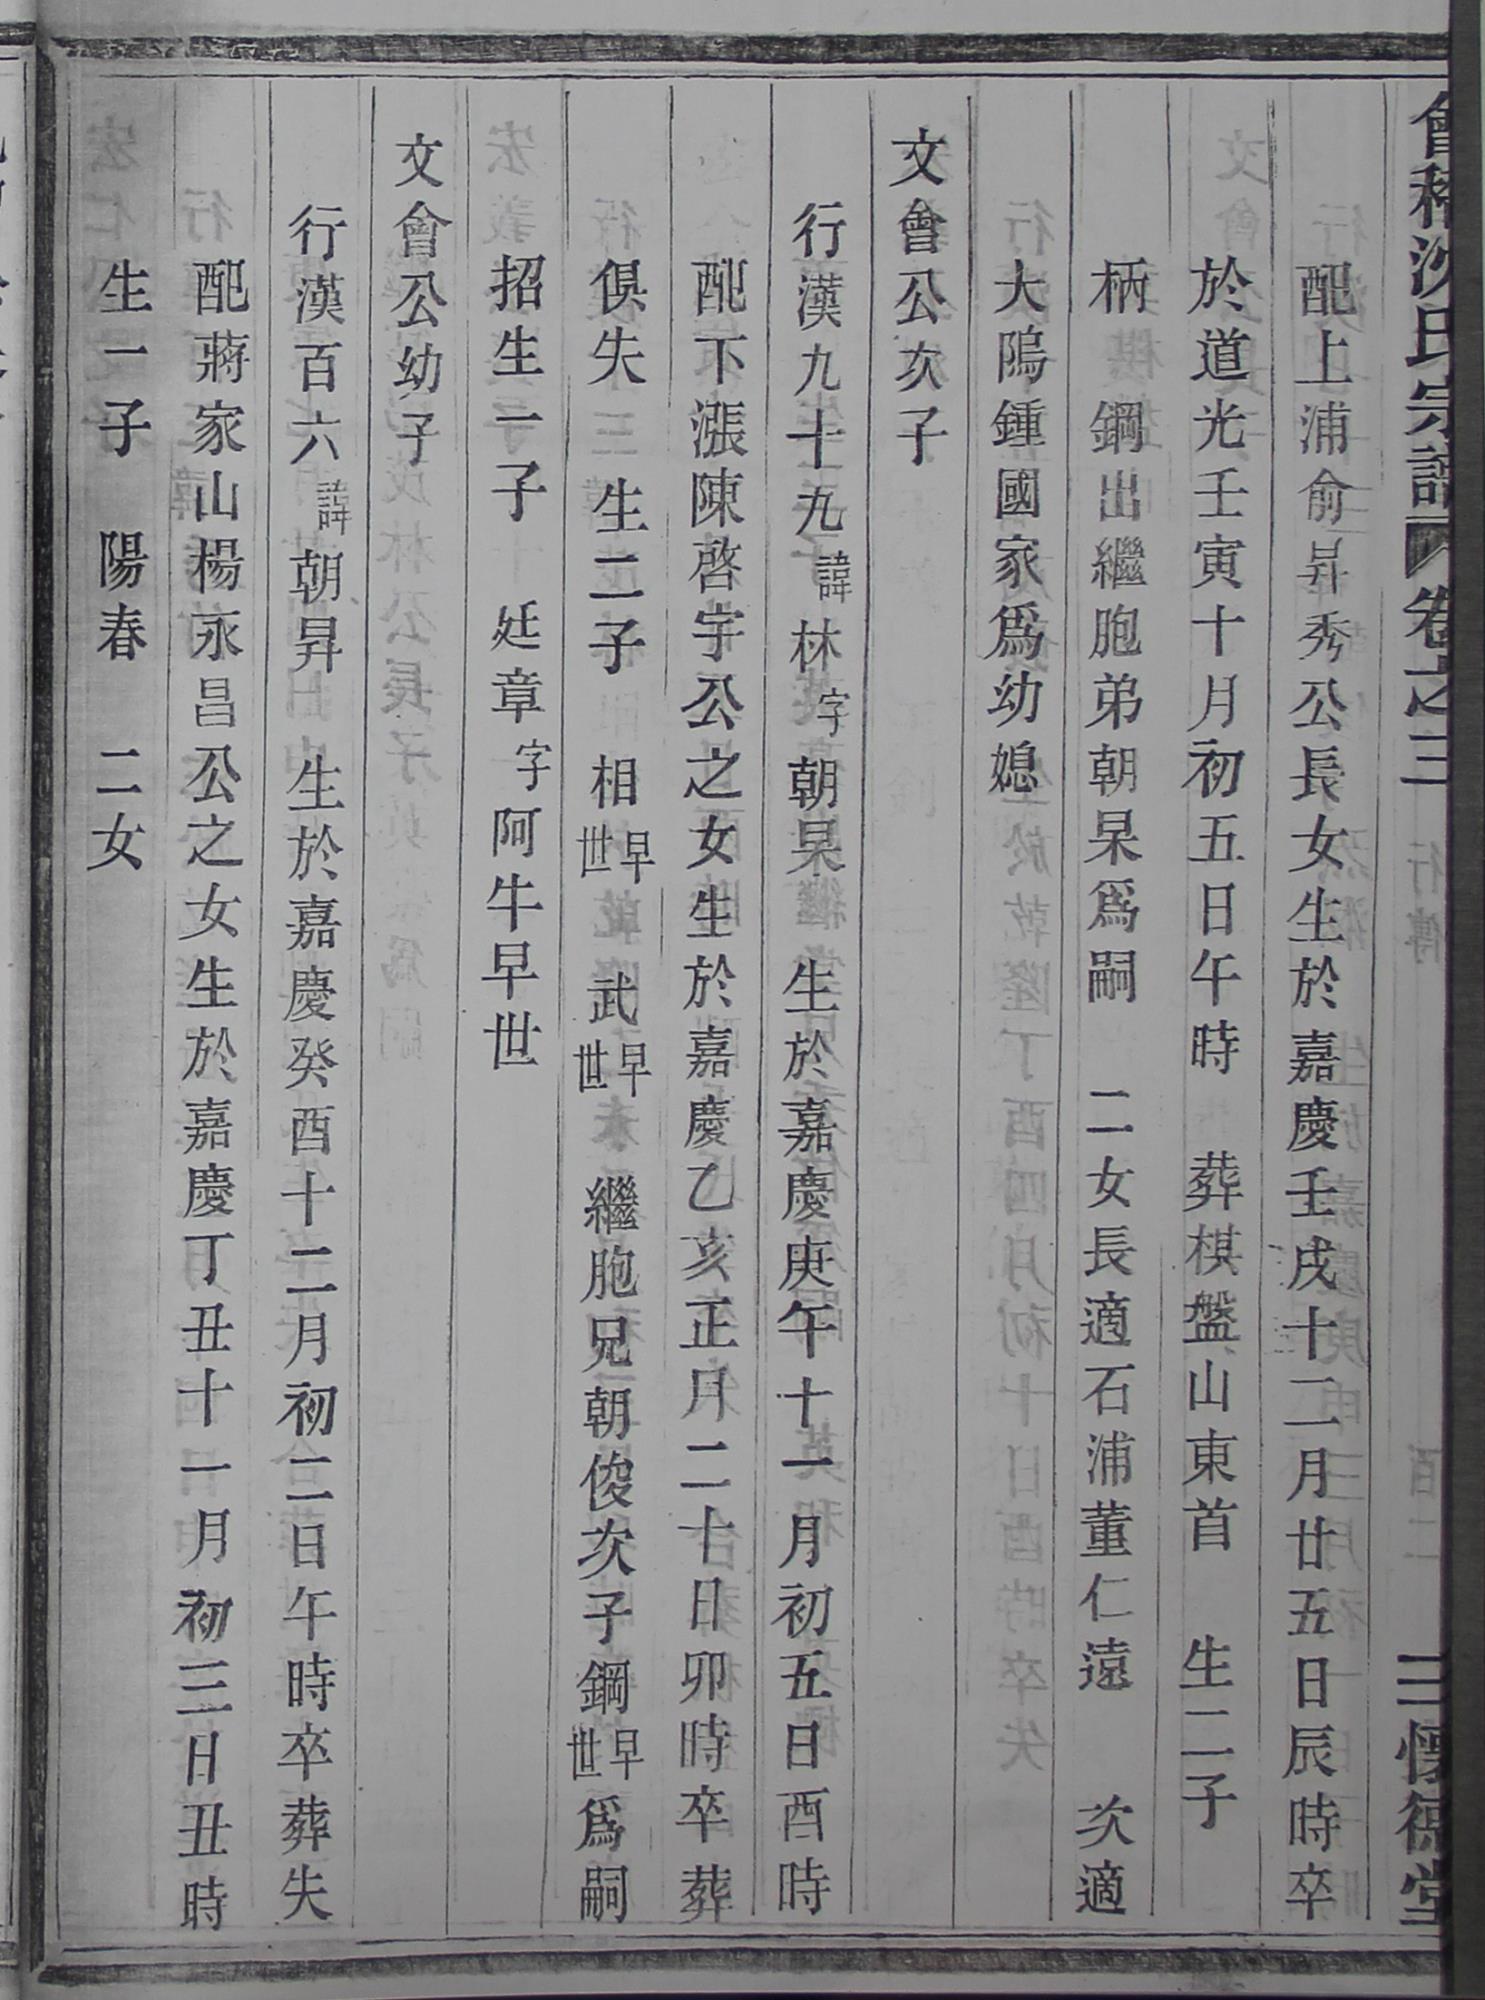 會稽沈氏宗譜 卷之三 三 懷德堂
配上浦俞昇秀公長女生於嘉慶壬戌十二月廿五日辰時卒
於道光壬寅十月初五日午時 葬棋盤山東首 生二子
柄 鋼出繼胞弟朝杲爲嗣 二女長適石浦董仁遠 次適
大隖鍾國家爲幼媳
文會公次子
行漢九十九諱林字朝杲 生於嘉慶庚午十一月初五日酉時
配下漲陳啓宇公之女生於嘉慶乙亥正月二十日卯時卒葬
俱失 生二子 相早世 武早世 繼胞兄朝俊次子鋼早世爲嗣
招生一子 廷章字阿牛早世
文會公幼子
行漢百六諱朝昇 生於嘉慶癸酉十二月初二日午時卒葬失
配蔣家山楊永昌公之女生於嘉慶丁丑十一月初三日丑時
生一子 陽春 二女